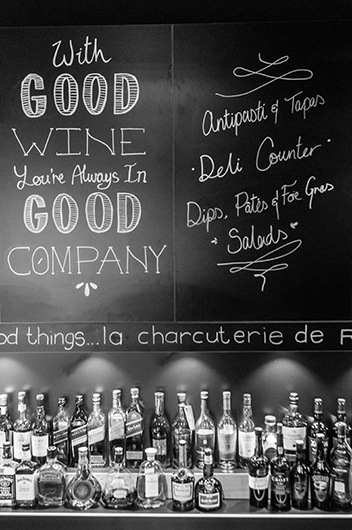 With
GOOD
WINE
You're Always In
GOOD
COMPANY
Antipasti & Tapas
Deli Counter
Dips, Pates & Foe Gras
Salads
od things...la charcuterie de R